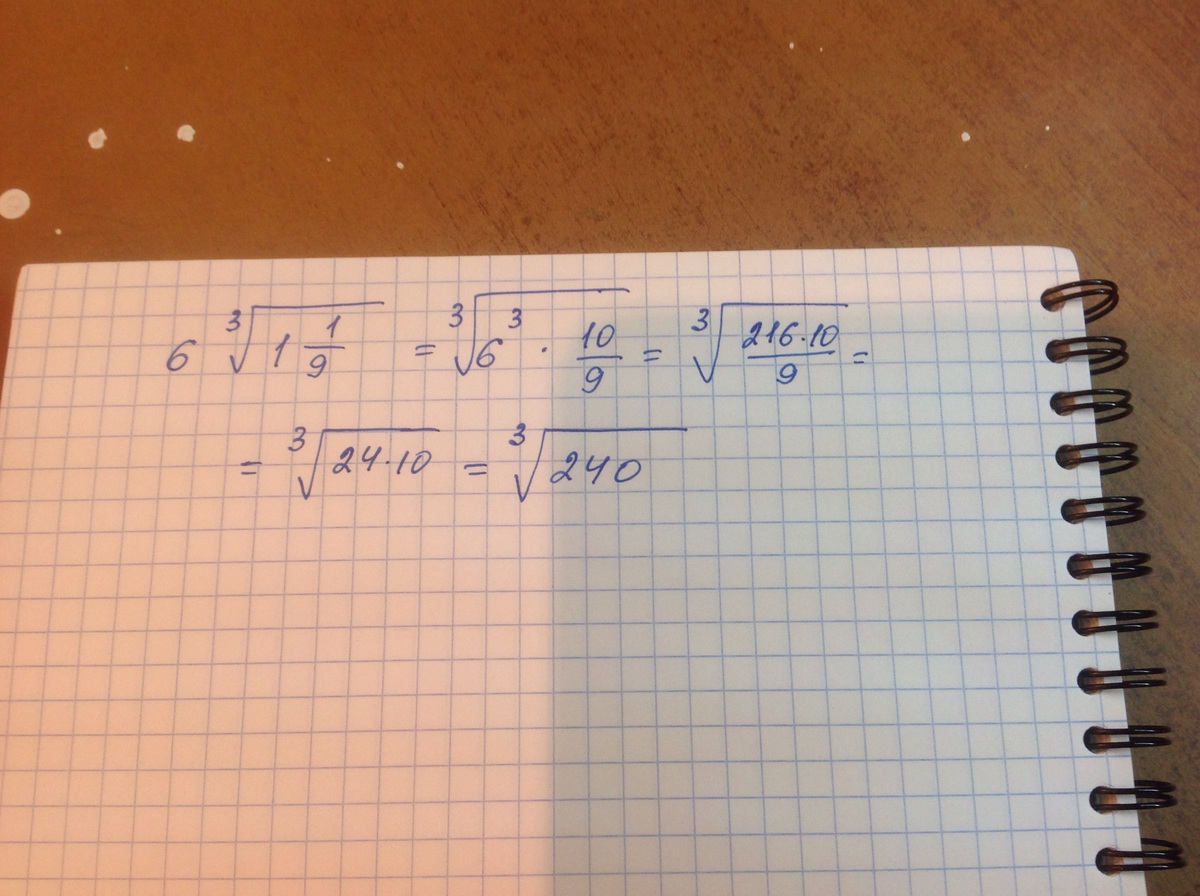 6 ∛(1 1/9) = ∛(6³ · 10/9) = ∛(216·10/9) =
= ∛(24·10) = ∛240